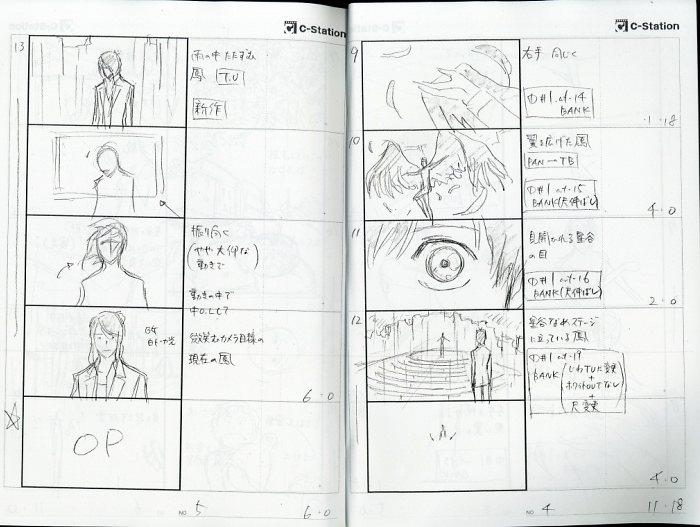 C-Station
9
右手 同じく
の#1 ct-14
BANK
1・18
10
翼を広げた鳳
PAN→TB
の#1 ct-15
BANK(尺伸ばし)
4・0
11
見開かれる星谷
の目
の#1 ct-16
BANK(尺伸ばし)
2・0
12
星谷なめステージ
に立っている鳳
の#1 ct-19
BANK
じわTUに変更
+
ホワイトOUTなし
+
尺変更
4・0
NO. 4
11・18
C-Station
13
雨の中たたずむ
鳳 T.U
新作
振り向く
(やや大仰な
動きで)
動きの中で
中O.Lして
微笑むカメラ目線の
現在の鳳
6・0
OP
NO. 5
6・0